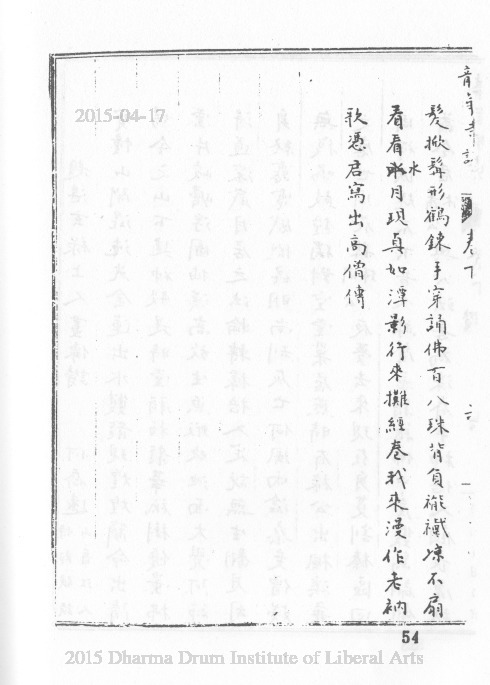 髮撚髯形鶴鍊手穿誦佛百八珠背負襤襶凉不扇
看看水月現真如潭影行來攤經卷我來漫作老衲
歌憑君寫出高僧傳
卷下
六
54
2015-04-17
2015 Dharma Drum Institute of Liberal Arts